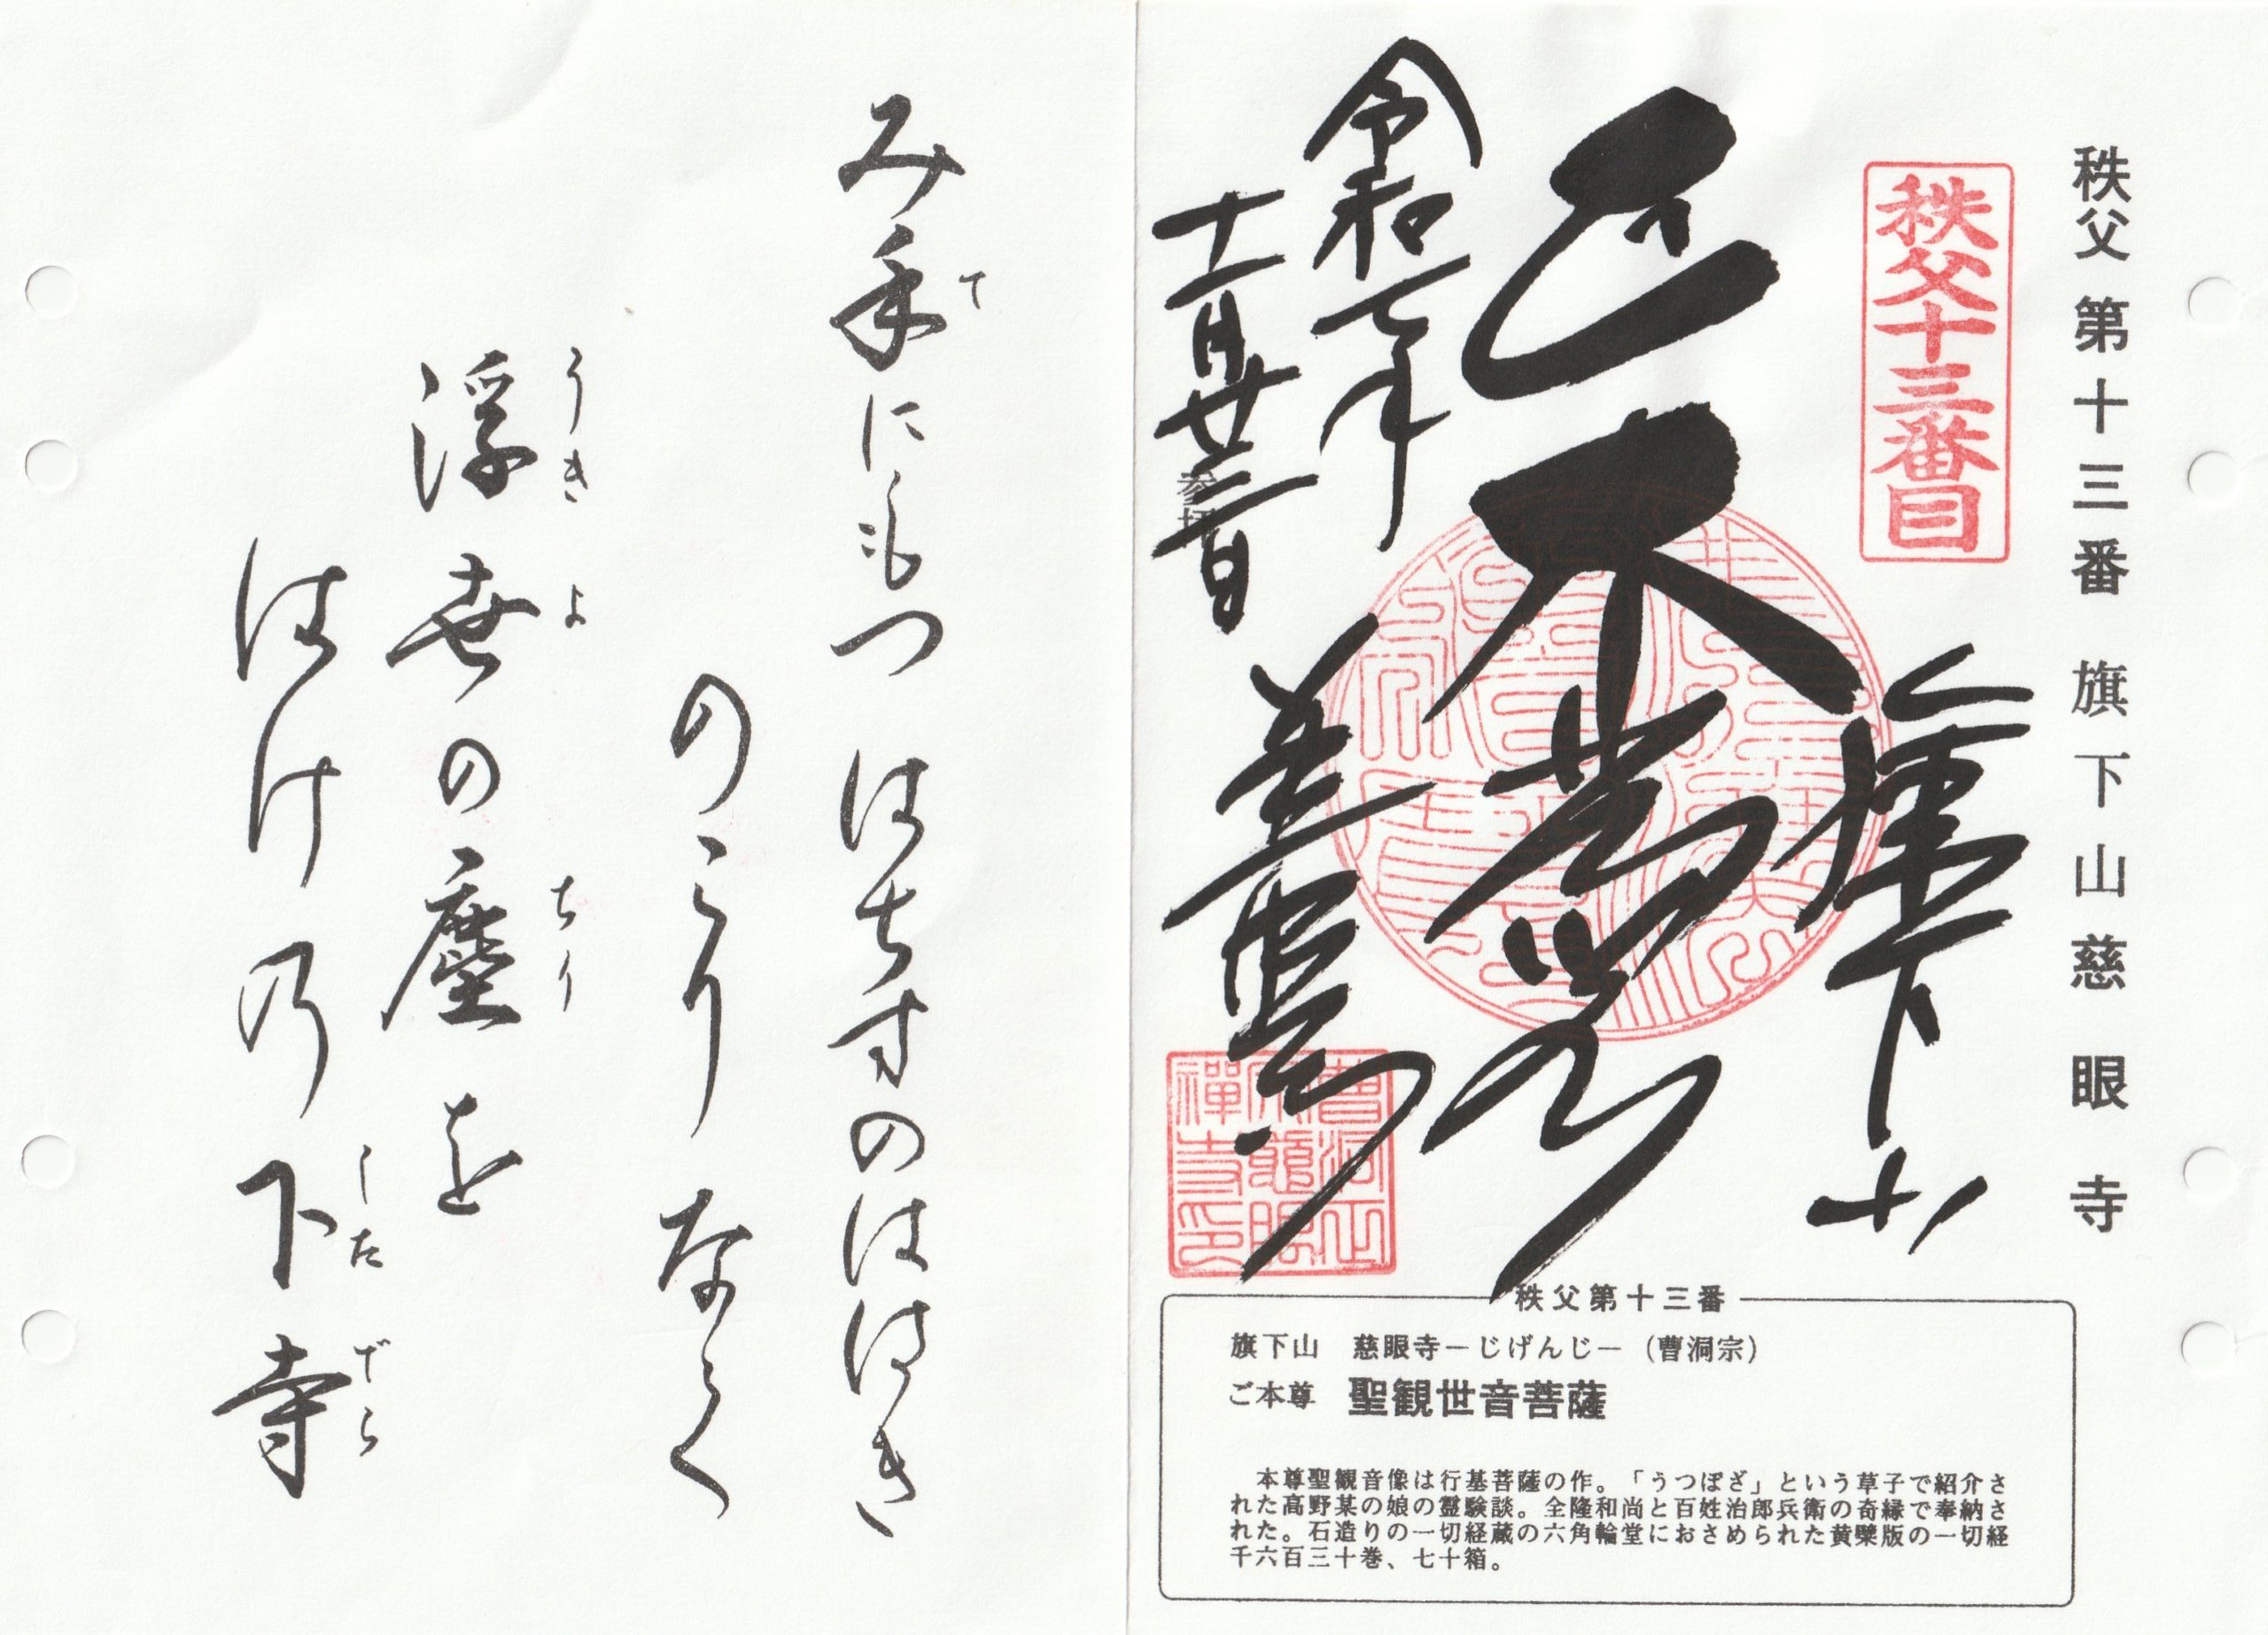 秩父第十三番 旗下山慈眼寺
秩父十三番目
旗下山
令和七年
十一月廿三日
参拝
慈眼寺
曹洞宗慈眼禅寺印
秩父第十三番
旗下山 慈眼寺－じげんじ－(曹洞宗)
ご本尊 聖観世音菩薩
本尊聖観音像は行基菩薩の作。「うつぼざ」という草子で紹介さ
れた高野某の娘の霊験談。全隆和尚と百姓治郎兵衛の奇縁で奉納さ
れた。石造りの一切経蔵の六角輪堂におさめられた黄檗版の一切経
千六百三十巻、七十箱。
み手にもつ はちすのははき
て
のこりなく
浮世の塵を
うきよ ちり
はけ乃下寺
したでら